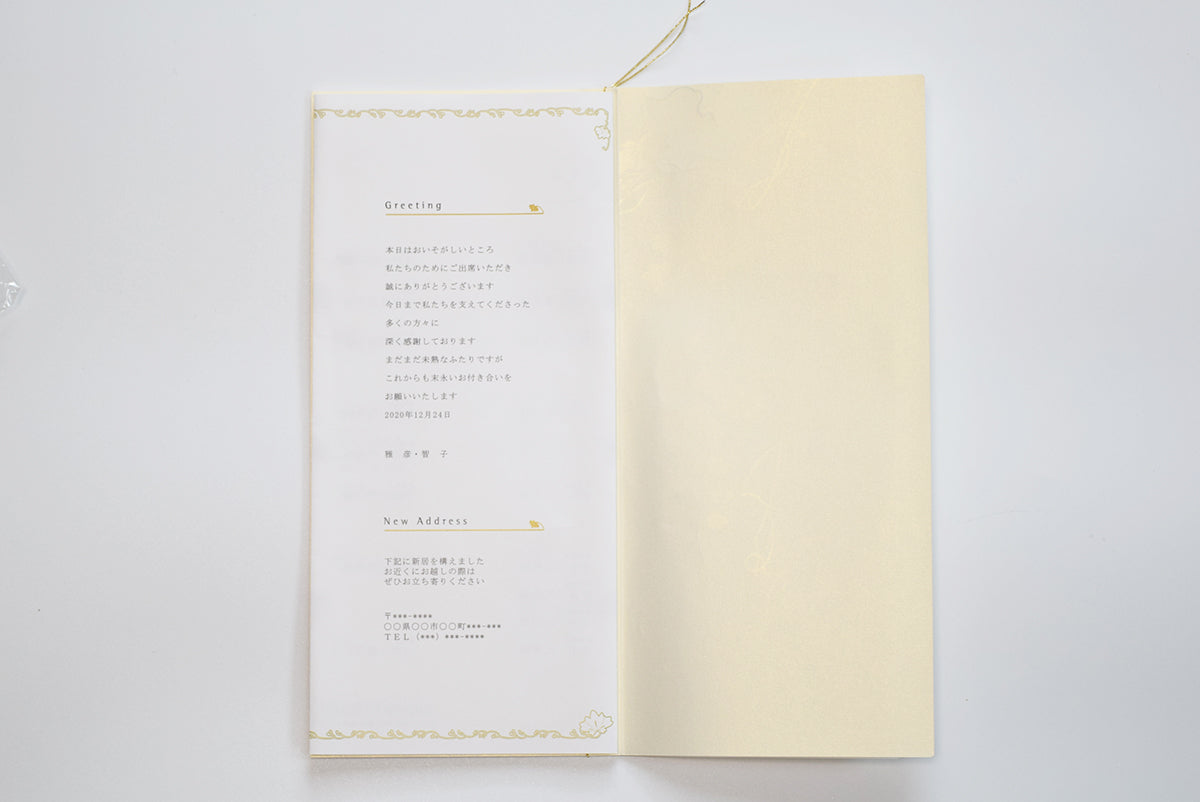 Greeting
本日はおいそがしいところ
私たちのためにご出席いただき
誠にありがとうございます
今日まで私たちを支えてくださった
多くの方々に
深く感謝しております
まだまだ未熟なふたりですが
これからも末永いお付き合いを
お願いいたします
2020年12月24日
雅　彦・智　子
New Address
下記に新居を構えました
お近くにお越しの際は
ぜひお立ち寄りください
〒***-****
○○県○○市○○町***-***
ＴＥＬ（***）***-****